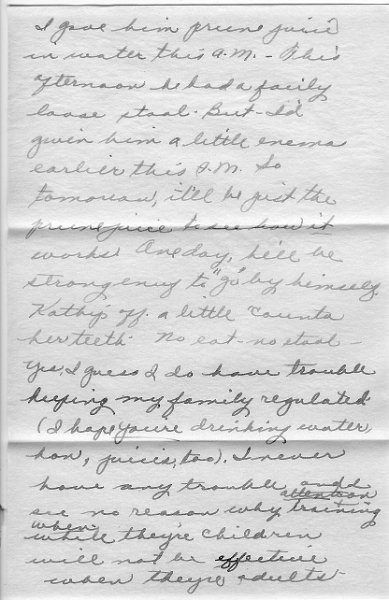 I gave him prune juice
in water this A.M. - This
afternoon he had a fairly
loose stool. But - I'd
givin him a little enema
earlier this P.M. So
tomorrow, it'll be just the
prune juice to see how it
works. One day, he'll be
strong enuy to "go" by himself.
Kathy's off a little 'counta
her teeth. No eat - no stool -
Yes, I guess I do have trouble
keeping my family regulated.
(I hope you're drinking water,
hon, juices, too). I never
have any trouble, and I
attention
see no reason why training
when
while they're children
will not be effective
when they're adults.